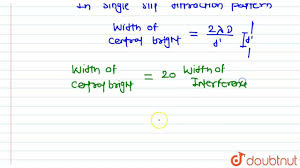 In single slit diffraction pattern
Width of central bright = 2λD / d'
d'
Width of central bright = 20 Width of Interference
doubtnut